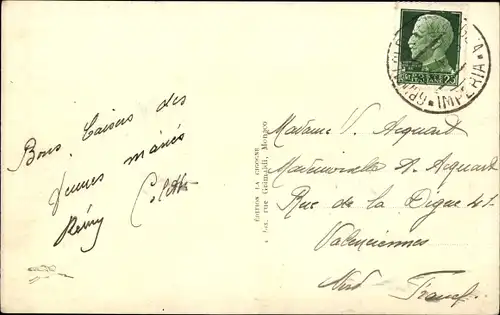 Bons baisers des
jeunes mariés
Rémy Colette
ÉDITION LA CIGOGNE
rue Grimaldi, Monaco
IMPERIA
Madame V. Acquart
Mademoiselle A. Acquart
Rue de la Digue 41
Valenciennes
Nord France